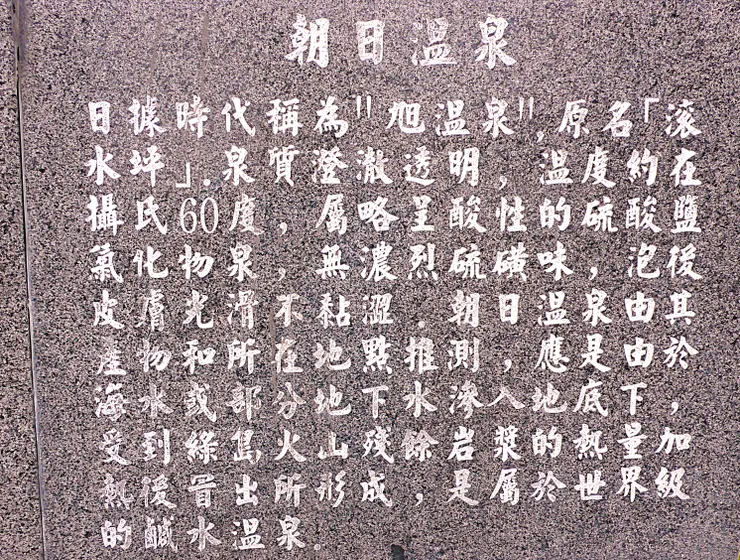 朝日溫泉
日據時代稱為"旭溫泉",原名「滾
水坪」.泉質澄澈透明,溫度約在
攝氏60度,屬略呈酸性的硫酸鹽
氯化物泉,無濃烈硫磺味,泡後
皮膚光滑不黏澀.朝日溫泉由其
產物和所在地點推測,應是由於
海水或部分地下水滲入地底下,
受到綠島火山殘餘岩漿的熱量加
熱後冒出所形成,是屬於世界級
的鹹水溫泉.